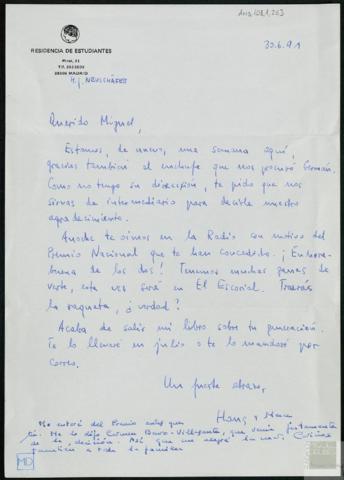 RESIDENCIA DE ESTUDIANTES
Pinar, 21
28006 MADRID
H.J. NEUSCHÄFER
30.6.91
Querido Miguel,
Estamos, de nuevo, una semana aquí,
gracias también al enchufe que nos procuró Germán.
Como no tengo su dirección, te pido que nos
sirvas de intermediario para decirle nuestro
agradecimiento.
Anoche te oímos en la Radio con motivo del
Premio Nacional que te han concedido. ¡Enhora-
buena de los dos! Tenemos muchas ganas de
verte, esta vez será en El Escorial. Traerás
la raqueta, ¿verdad?
Acaba de salir mi libro sobre tu narración.
Te lo llevaré en julio o te lo mandaré por
correo.
Un fuerte abrazo,
Hans y
Me enteré del Premio antes que
tú. Me lo dijo Carmen Bravo-Villasante, que venía justamente
de la decisión. Así que me alegró la
también a toda la familia
MD